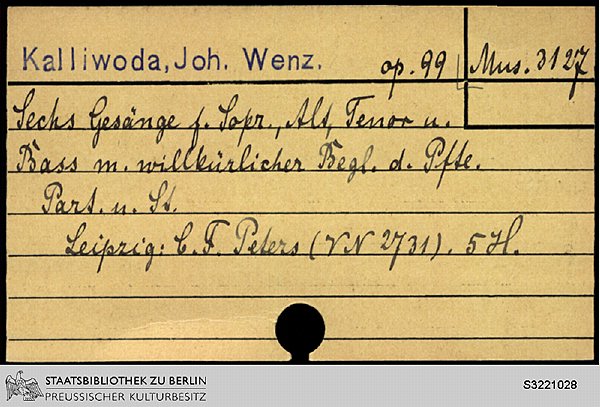 Kalliwoda, Joh. Wenz. op. 99 Mus. 3127
Sechs Gesänge f. Sopr., Alt, Tenor u.
Bass m. willkürlicher Begl. d. Pfte.
Part. u. St.
Leipzig: C. F. Peters (VN 2731). 5 H.
STAATSBIBLIOTHEK ZU BERLIN
PREUSSISCHER KULTURBESITZ
S3221028